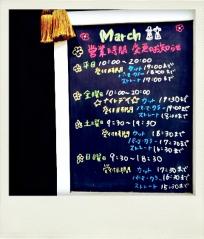 March
営業時間 変更のお知らせ
平日 10:00~20:00
受付時間 カット 19:00まで
パーマ・カラー 18:00まで
ストレート 17:30まで
金曜日 10:00~20:00
☆ナイトデイ☆ カット 19:30まで
受付時間 パーマ・カラー 19:00まで
ストレート 18:00まで
土曜日 9:30~19:30
受付時間 カット 18:30まで
パーマ・カラー 17:30まで
ストレート 16:30まで
日曜日 9:30~18:30
受付時間 カット 17:30まで
パーマ・カラー 16:30まで
ストレート 15:30まで